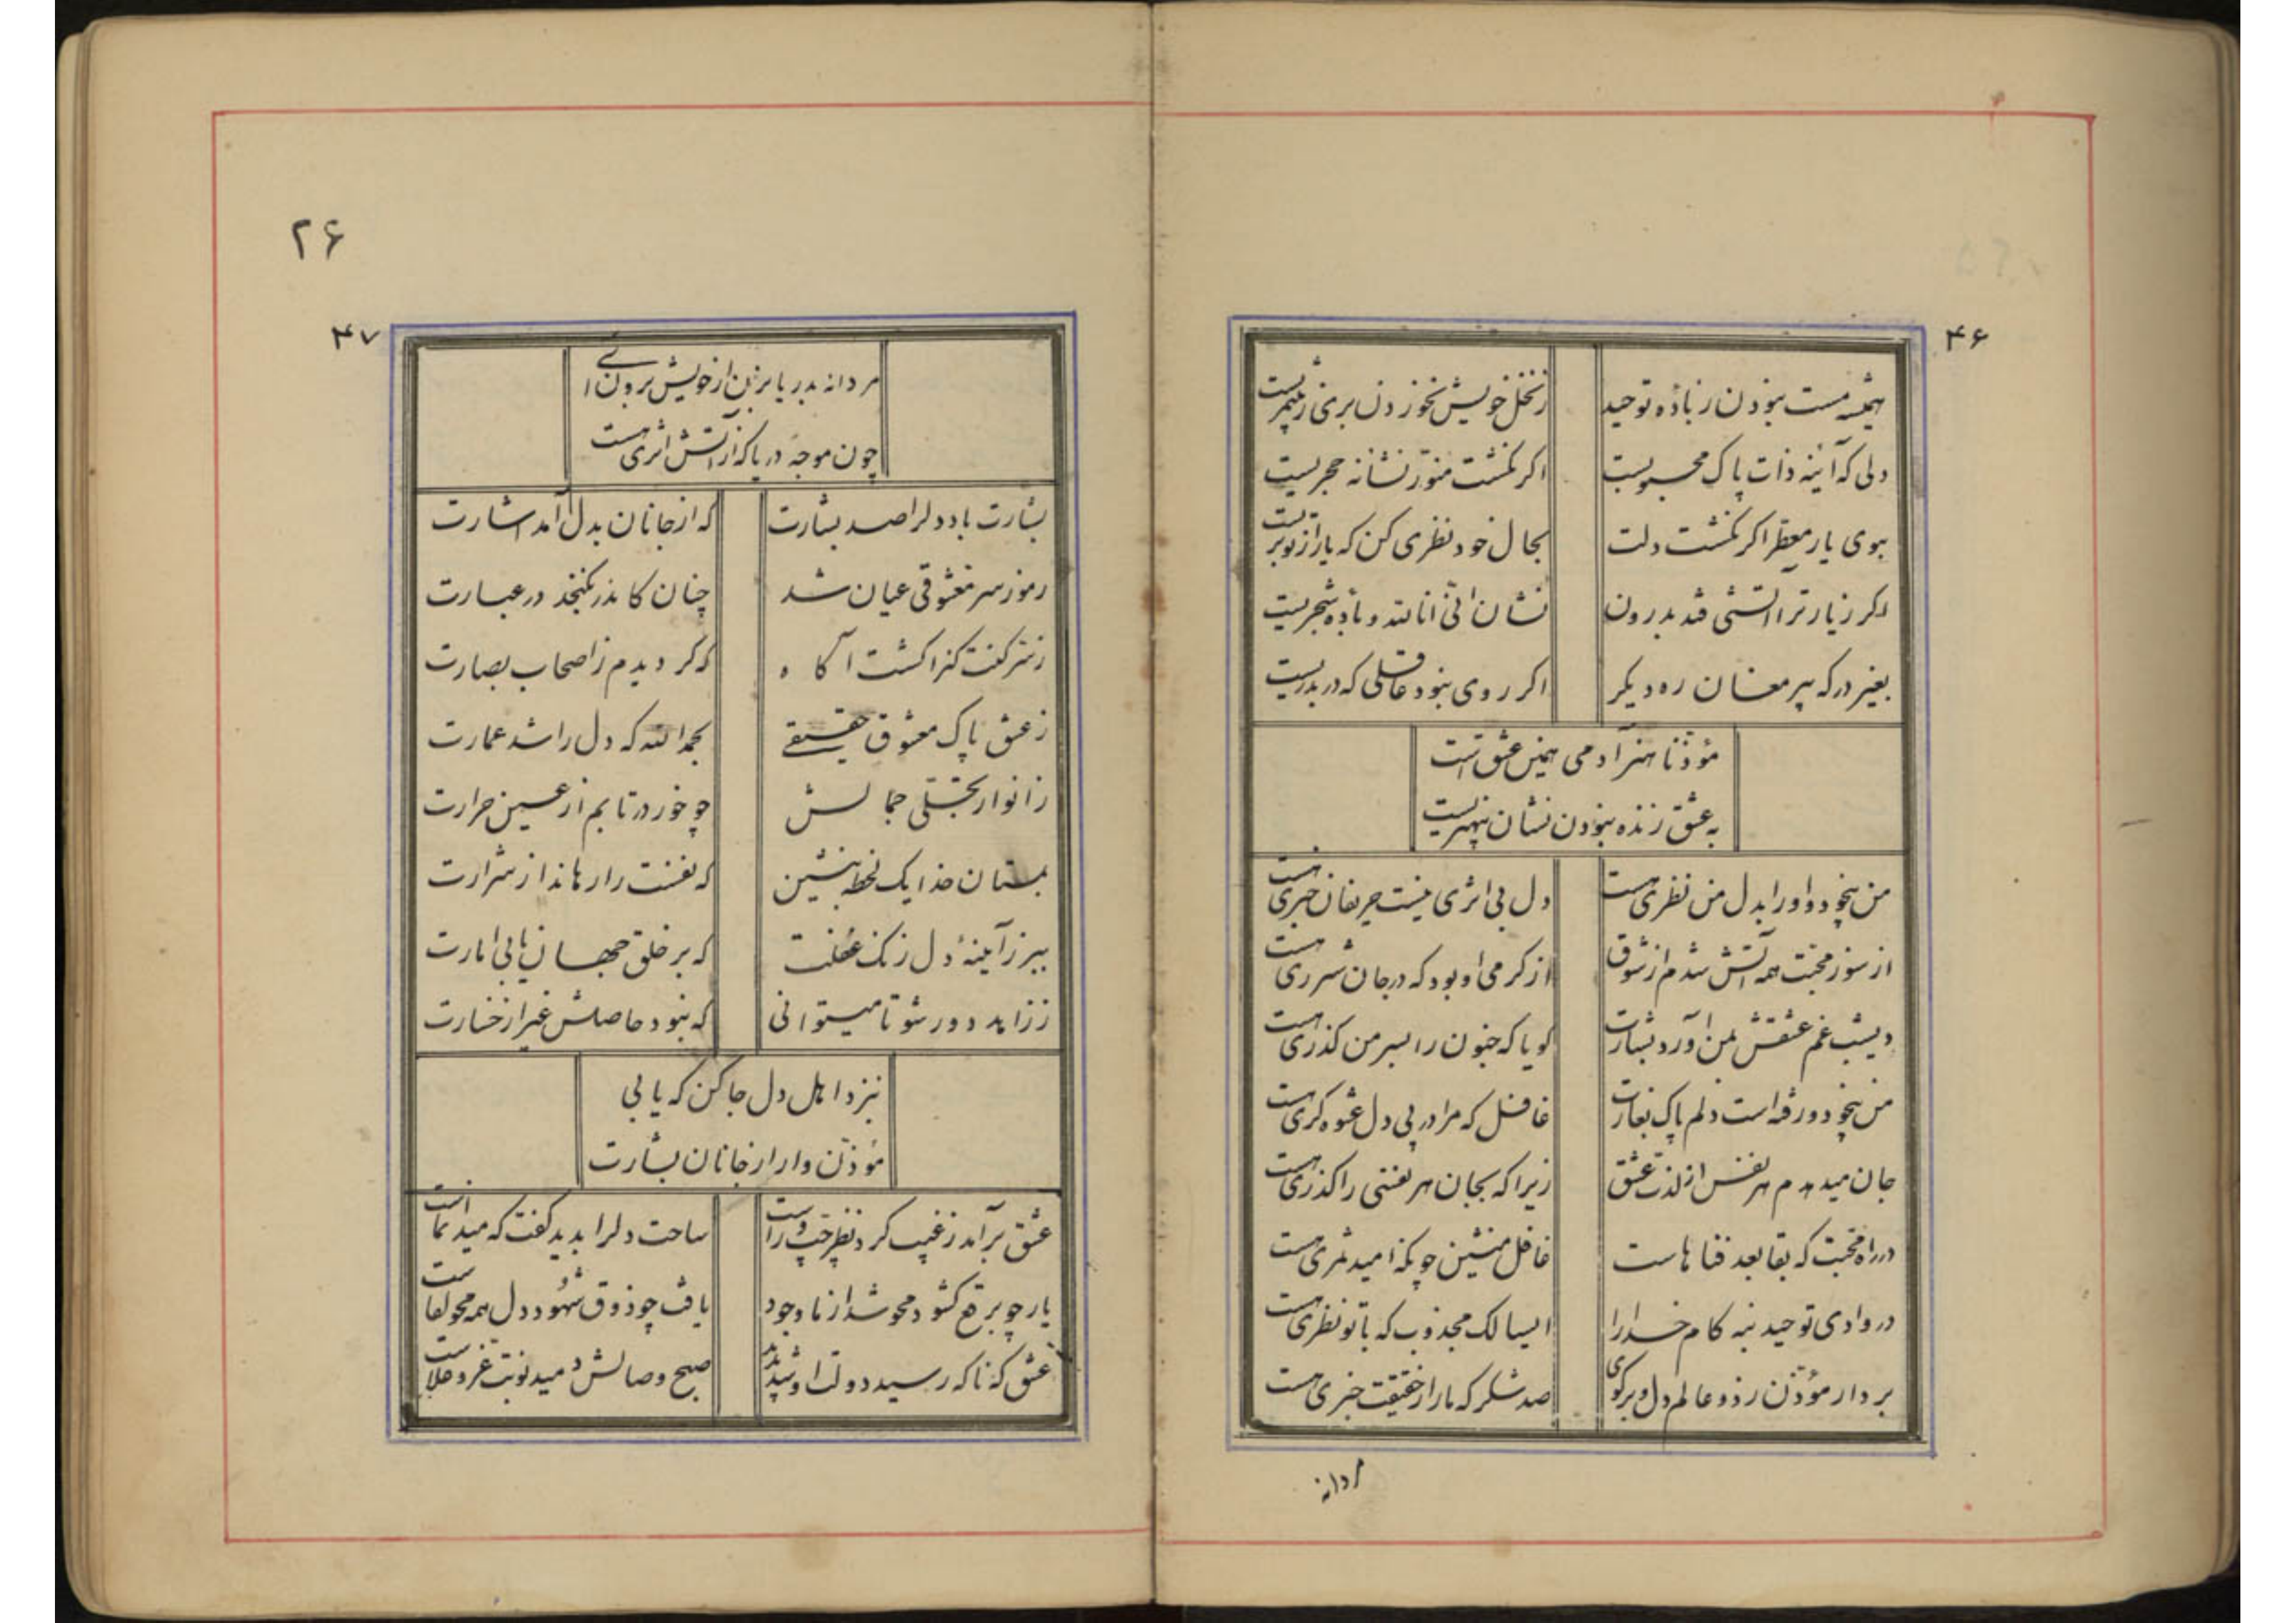 ۴۶
همیشه مست نبودن ز باده توحید ز نخل خویش نخوردن بری ز بی ثمریست
دلی که آینه ذات پاک محبوبست اگر نگشت منور نشانه حجریست
ببوی یار معطر اگر نگشت دلت بحال خود نظری کن که یار از تو بریست
اگر ز یار ترا آتشی فتد بدرون نشان انی انا الله و باده شجریست
بغیر درگه پیر مغان ره دیگر اگر روی نبود عاقلی که در بدریست
مؤذنا هنر آدمی همین عشق است
به عشق زنده نبودن نشان بی هنریست
من بیخود و او را بدل من نظری هست دل بی اثری نیست حریفان خبری هست
از سوز محبت همه آتش شدم از شوق از گرمی او بود که در جان شرری هست
دیشب غم عشقش بمن آورد بشارت گویا که جنون را بسر من گذری هست
من بیخود و رفته است دلم پاک بغارت غافل که مرا در پی دل عشوه گری هست
جان میدهم هر نفس از لذت عشق زیرا که بجان هر نفسی را گذری هست
در راه محبت که بقا بعد فنا هاست غافل منشین چونکه امید ثمری هست
در وادی توحید بنه کام خدا را ای سالک مجذوب که با تو نظری هست
بردار مؤذن ز دو عالم دل و بر گوی صد شکر که ما را ز حقیقت خبری هست
مردانه
۲۶
۴۷
مردانه بدریا بزن از خویش برون ائے
چون موجه دریا که از آتش اثری هست
بشارت باد دلرا صد بشارت که از جانان بدل آمد اشارت
رموز سر معشوقی عیان شد چنان کاندر نگنجد در عبارت
ز سر کنت کنزا گشت آگاه که گردیدم ز اصحاب بصارت
ز عشق پاک معشوق حقیقے بحمد الله که دل را شد عمارت
ز انوار تجلی جمالش چو خور در تابم از عین حرارت
بمستان خدا یک لحظه بنشین که نفست را رهاند از شرارت
ببر ز آینهٔ دل زنگ غفلت که بر خلق جهان یابی امارت
ز زاهد دور شو تا میتوانی که نبود حاصلش غیر از خسارت
بنزد اهل دل جا کن که یابی
مؤذن وار از جانان بشارت
عشق برآمد ز غیب کرد نظر چپ و راست ساحت دلرا بدید گفت که میدان ماست
یار چو برقع گشود محو شد از ما وجود یافت چو ذوق شهود دل همه محو لقاست
عشق که ناگه رسید دولت او شد پدید صبح وصالش دمید نوبت عز و علاست